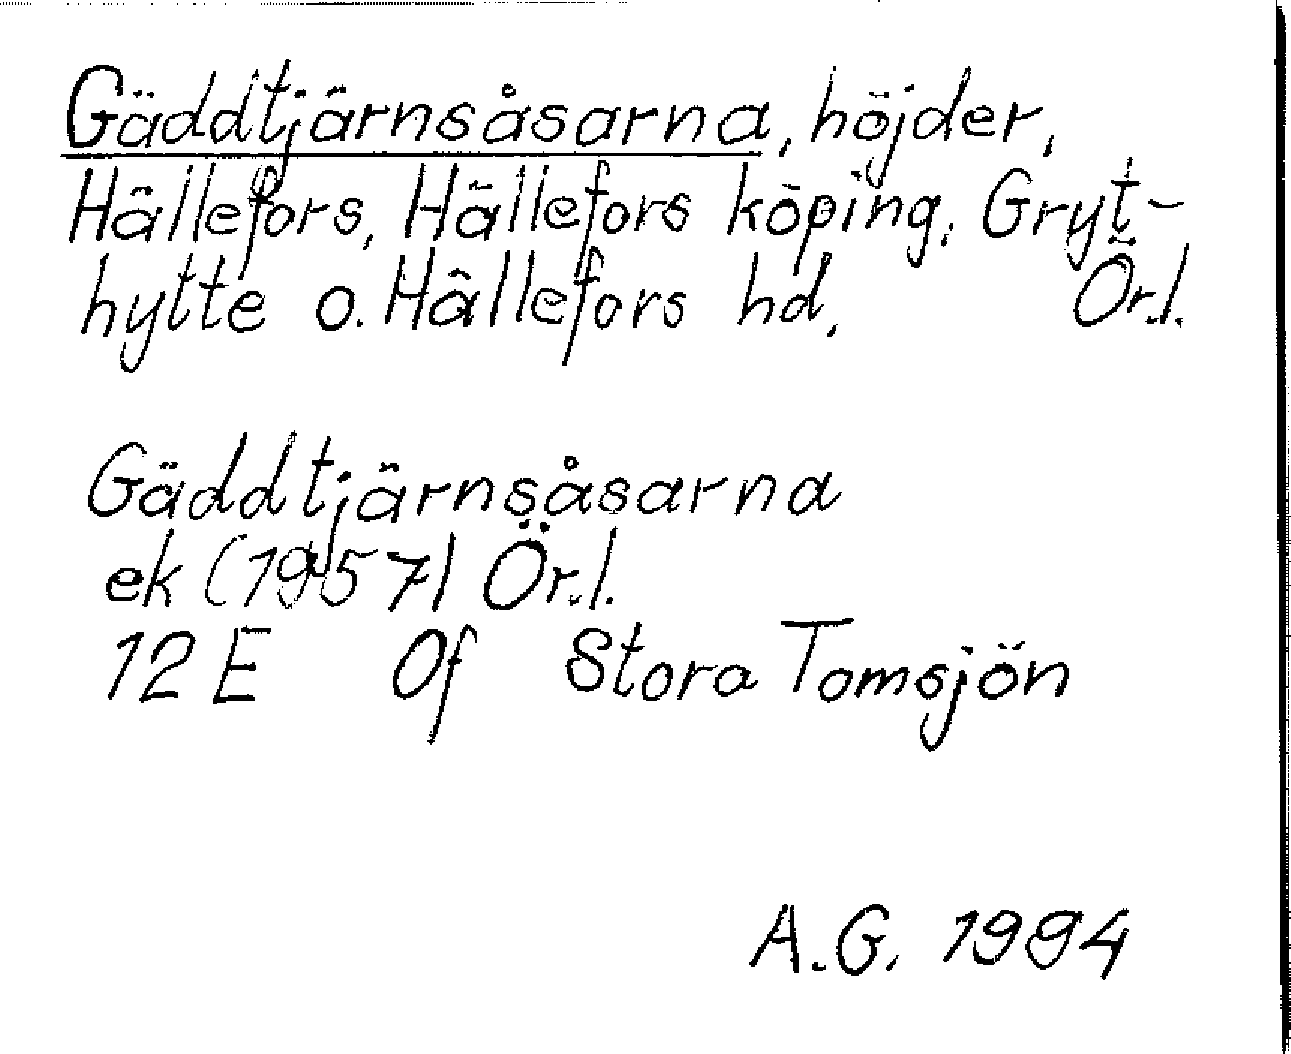 Gäddtjärnsåsarna, höjder,
Hällefors, Hällefors köping, Gryt-
hytte o. Hällefors hd, Ör.l.
Gäddtjärnsåsarna
ek (1957) Ör.l.
12 E 0f Stora Tomsjön
A.G. 1994